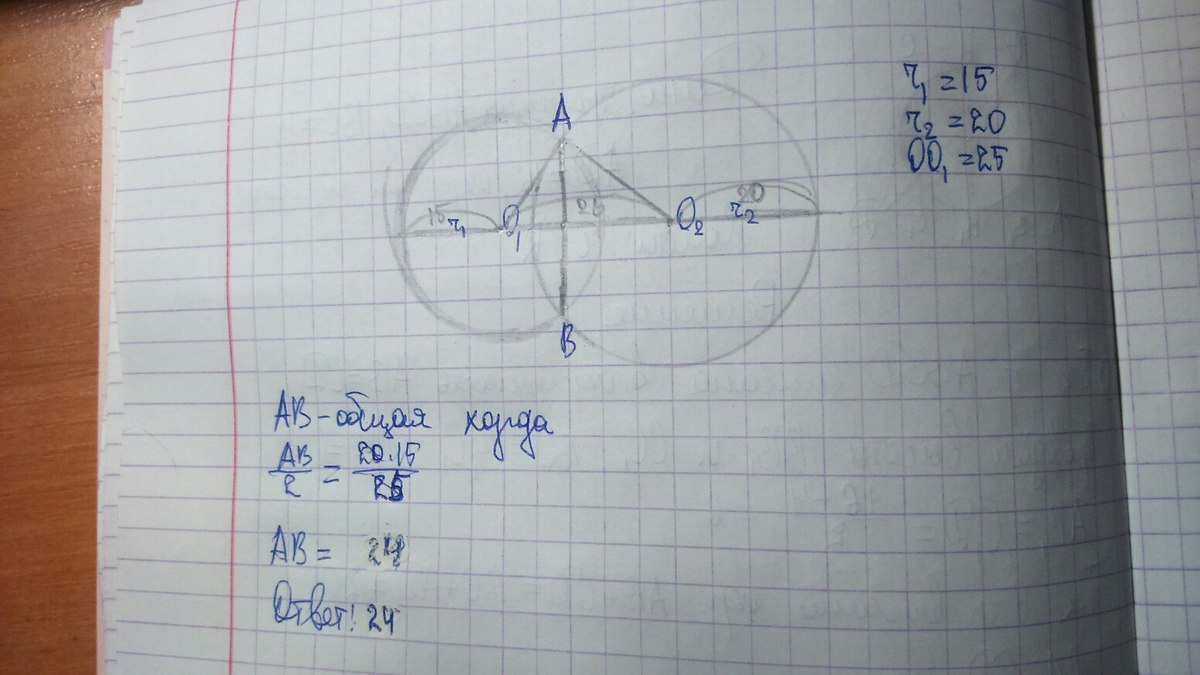 r₁ = 15
r₂ = 20
OO₁ = 25
A
15 r₁ O₁ O₂ 20 r₂
B
AB - общая хорда
AB/2 = 20·15/25
AB = 24
Ответ: 24